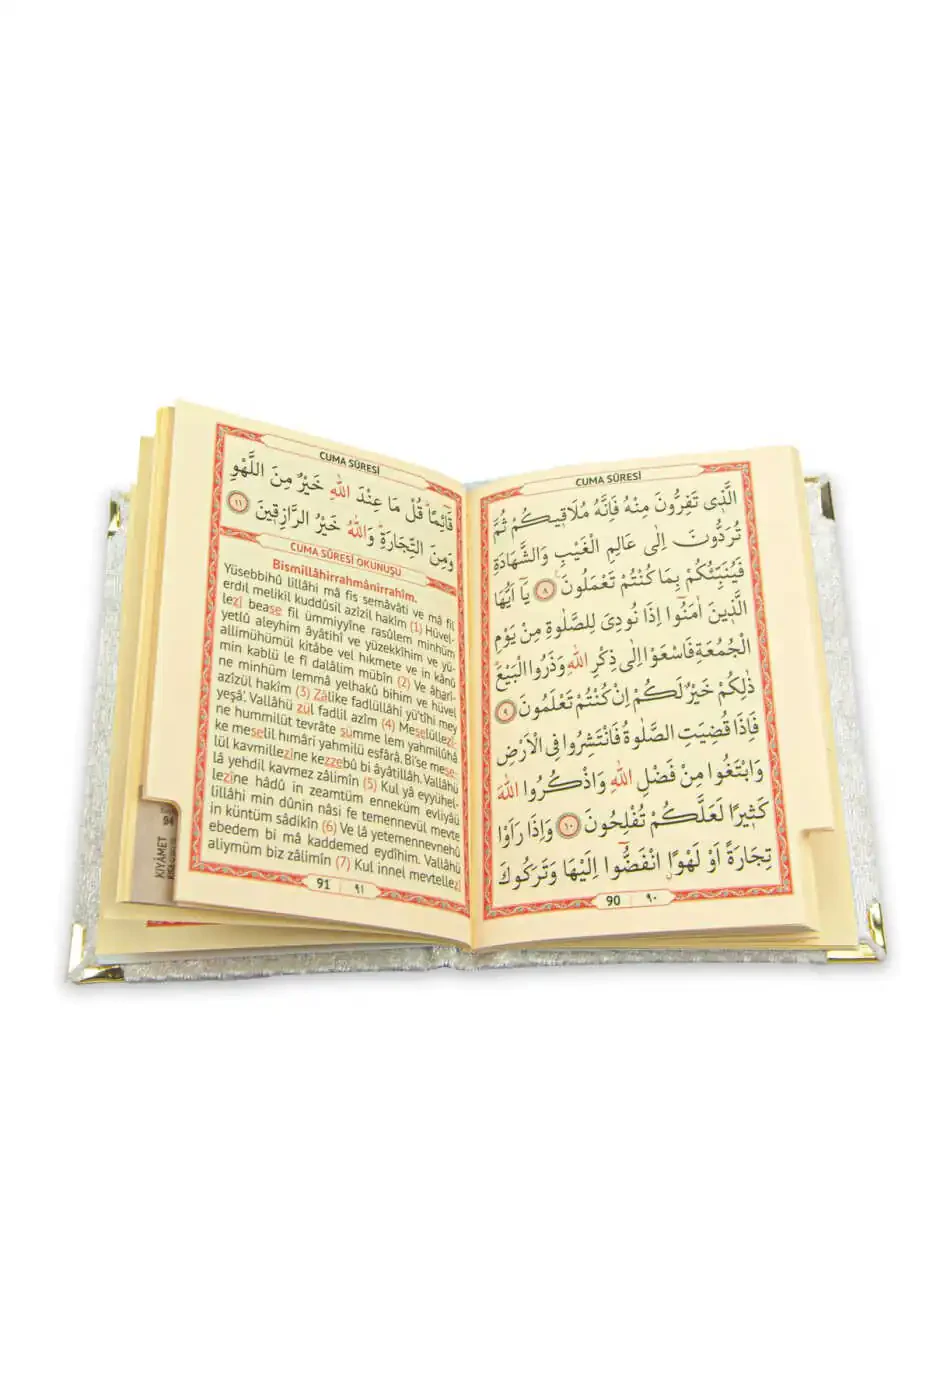 CUMA SÛRESİ
الَّذ۪ي تَفِرُّونَ مِنْهُ فَاِنَّهُ مُلَاق۪يكُمْ ثُمَّ
تُرَدُّونَ اِلٰى عَالِمِ الْغَيْبِ وَالشَّهَادَةِ
فَيُنَبِّئُكُمْ بِمَا كُنْتُمْ تَعْمَلُونَ ٨ يَٓا اَيُّهَا
الَّذ۪ينَ اٰمَنُٓوا اِذَا نُودِيَ لِلصَّلٰوةِ مِنْ يَوْمِ
الْجُمُعَةِ فَاسْعَوْا اِلٰى ذِكْرِ اللّٰهِ وَذَرُوا الْبَيْعَۜ
ذٰلِكُمْ خَيْرٌ لَكُمْ اِنْ كُنْتُمْ تَعْلَمُونَ ٩
فَاِذَا قُضِيَتِ الصَّلٰوةُ فَانْتَشِرُوا فِي الْاَرْضِ
وَابْتَغُوا مِنْ فَضْلِ اللّٰهِ وَاذْكُرُوا اللّٰهَ
كَث۪يرًا لَعَلَّكُمْ تُفْلِحُونَ ١٠ وَاِذَا رَاَوْا
تِجَارَةً اَوْ لَهْوًاۨ انْفَضُّٓوا اِلَيْهَا وَتَرَكُوكَ
90 ٩٠
CUMA SÛRESİ
قَٓائِمًاۜ قُلْ مَا عِنْدَ اللّٰهِ خَيْرٌ مِنَ اللَّهْوِ
وَمِنَ التِّجَارَةِۜ وَاللّٰهُ خَيْرُ الرَّازِق۪ينَ ١١
CUMA SÛRESİ OKUNUŞU
Bismillâhirrahmânirrahîm.
Yüsebbihû lillâhi mâ fis semâvâti ve mâ fil
erdil melikil kuddûsil azîzil hakîm (1) Hüvel-
lezî bease fil ümmiyyîne rasûlem minhüm
yetlû aleyhim âyâtihî ve yüzekkîhim ve yü-
allimühümül kitâbe vel hıkmete ve in kânû
min kablü le fî dalâlim mübîn (2) Ve âharî-
ne minhüm lemmâ yelhakû bihim ve hüvel
azîzül hakîm (3) Zâlike fadlüllâhi yü'tîhi mey
yeşâ'. Vallâhü zül fadlil azîm (4) Meselüllezî-
ne hummilüt tevrâte sümme lem yahmilûhâ
ke meselil hımâri yahmilü esfârâ. Bi'se mese-
lül kavmillezîne kezzebû bi âyâtillâh. Vallâhü
lâ yehdil kavmez zâlimîn (5) Kul yâ eyyühel-
lezîne hâdû in zeamtüm enneküm evliyâü
lillâhi min dûnin nâsi fe temennevül mevte
in küntüm sâdikîn (6) Ve lâ yetemennevnehû
ebedem bi mâ kaddemed eydîhim. Vallâhü
aliymüm biz zâlimîn (7) Kul innel mevtellezî
91 ٩١
94
KIYÂMET